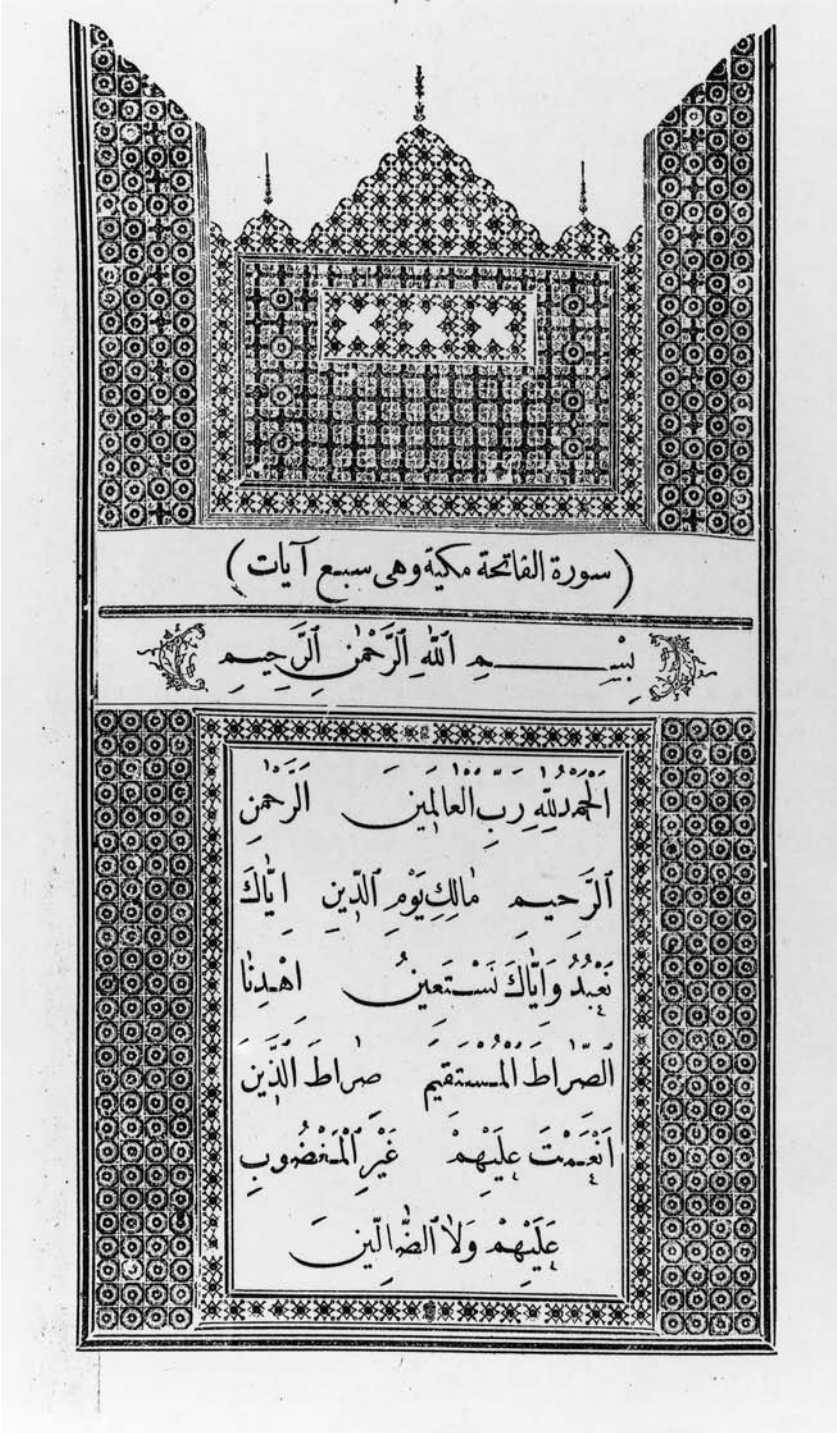 (سورة الفاتحة مكية وهى سبع آيات)
بِسْمِ ٱللّٰهِ ٱلرَّحْمٰنِ ٱلرَّحِيمِ
اَلْحَمْدُ لِلّٰهِ رَبِّ الْعَالَمِينَ اَلرَّحْمٰنِ
ٱلرَّحِيمِ مَالِكِ يَوْمِ ٱلدِّينِ اِيَّاكَ
نَعْبُدُ وَاِيَّاكَ نَسْتَعِينُ اِهْدِنَا
ٱلصِّرَاطَ الْمُسْتَقِيمَ صِرَاطَ الَّذِينَ
اَنْعَمْتَ عَلَيْهِمْ غَيْرِ ٱلْمَغْضُوبِ
عَلَيْهِمْ وَلَا ٱلضَّالِّينَ